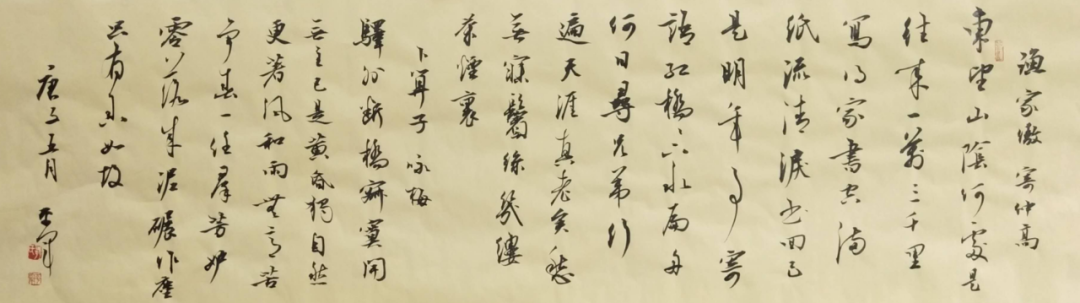 漁家傲 寄仲高
東望山陰何處是
往来一萬三千里
寫得家書空滿
紙流清淚书回已
是明年事寄
語紅橋下水扁舟
何日尋兄弟行
遍天涯真老矣愁
無寐鬢絲幾縷
茶煙裏
卜算子 咏梅
驛外斷橋寂寞開
無主已是黄昏獨自愁
更著風和雨無意苦
爭春一任羣芳妒
零落成泥碾作塵
只有香如故
庚子五月